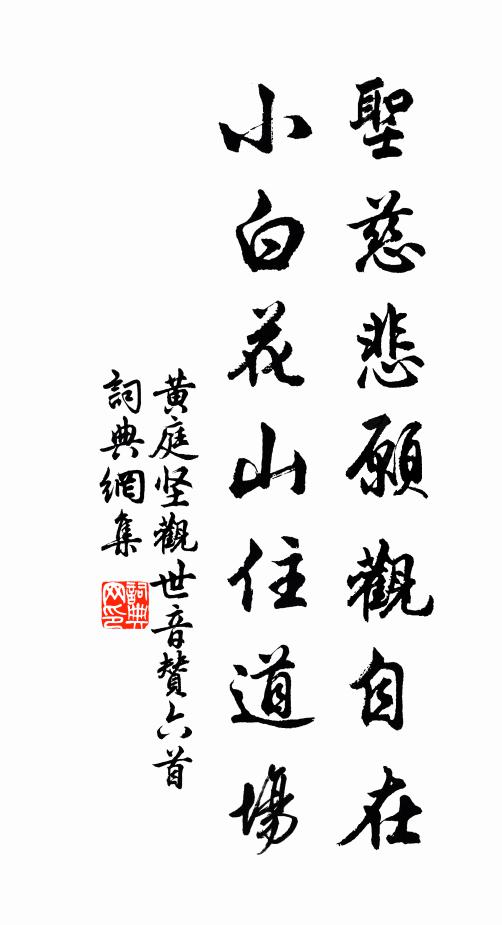 聖慈悲願觀自在
小白花山住道場
黄庭坚觀世音贊六首
詞典網集
詞典
网印